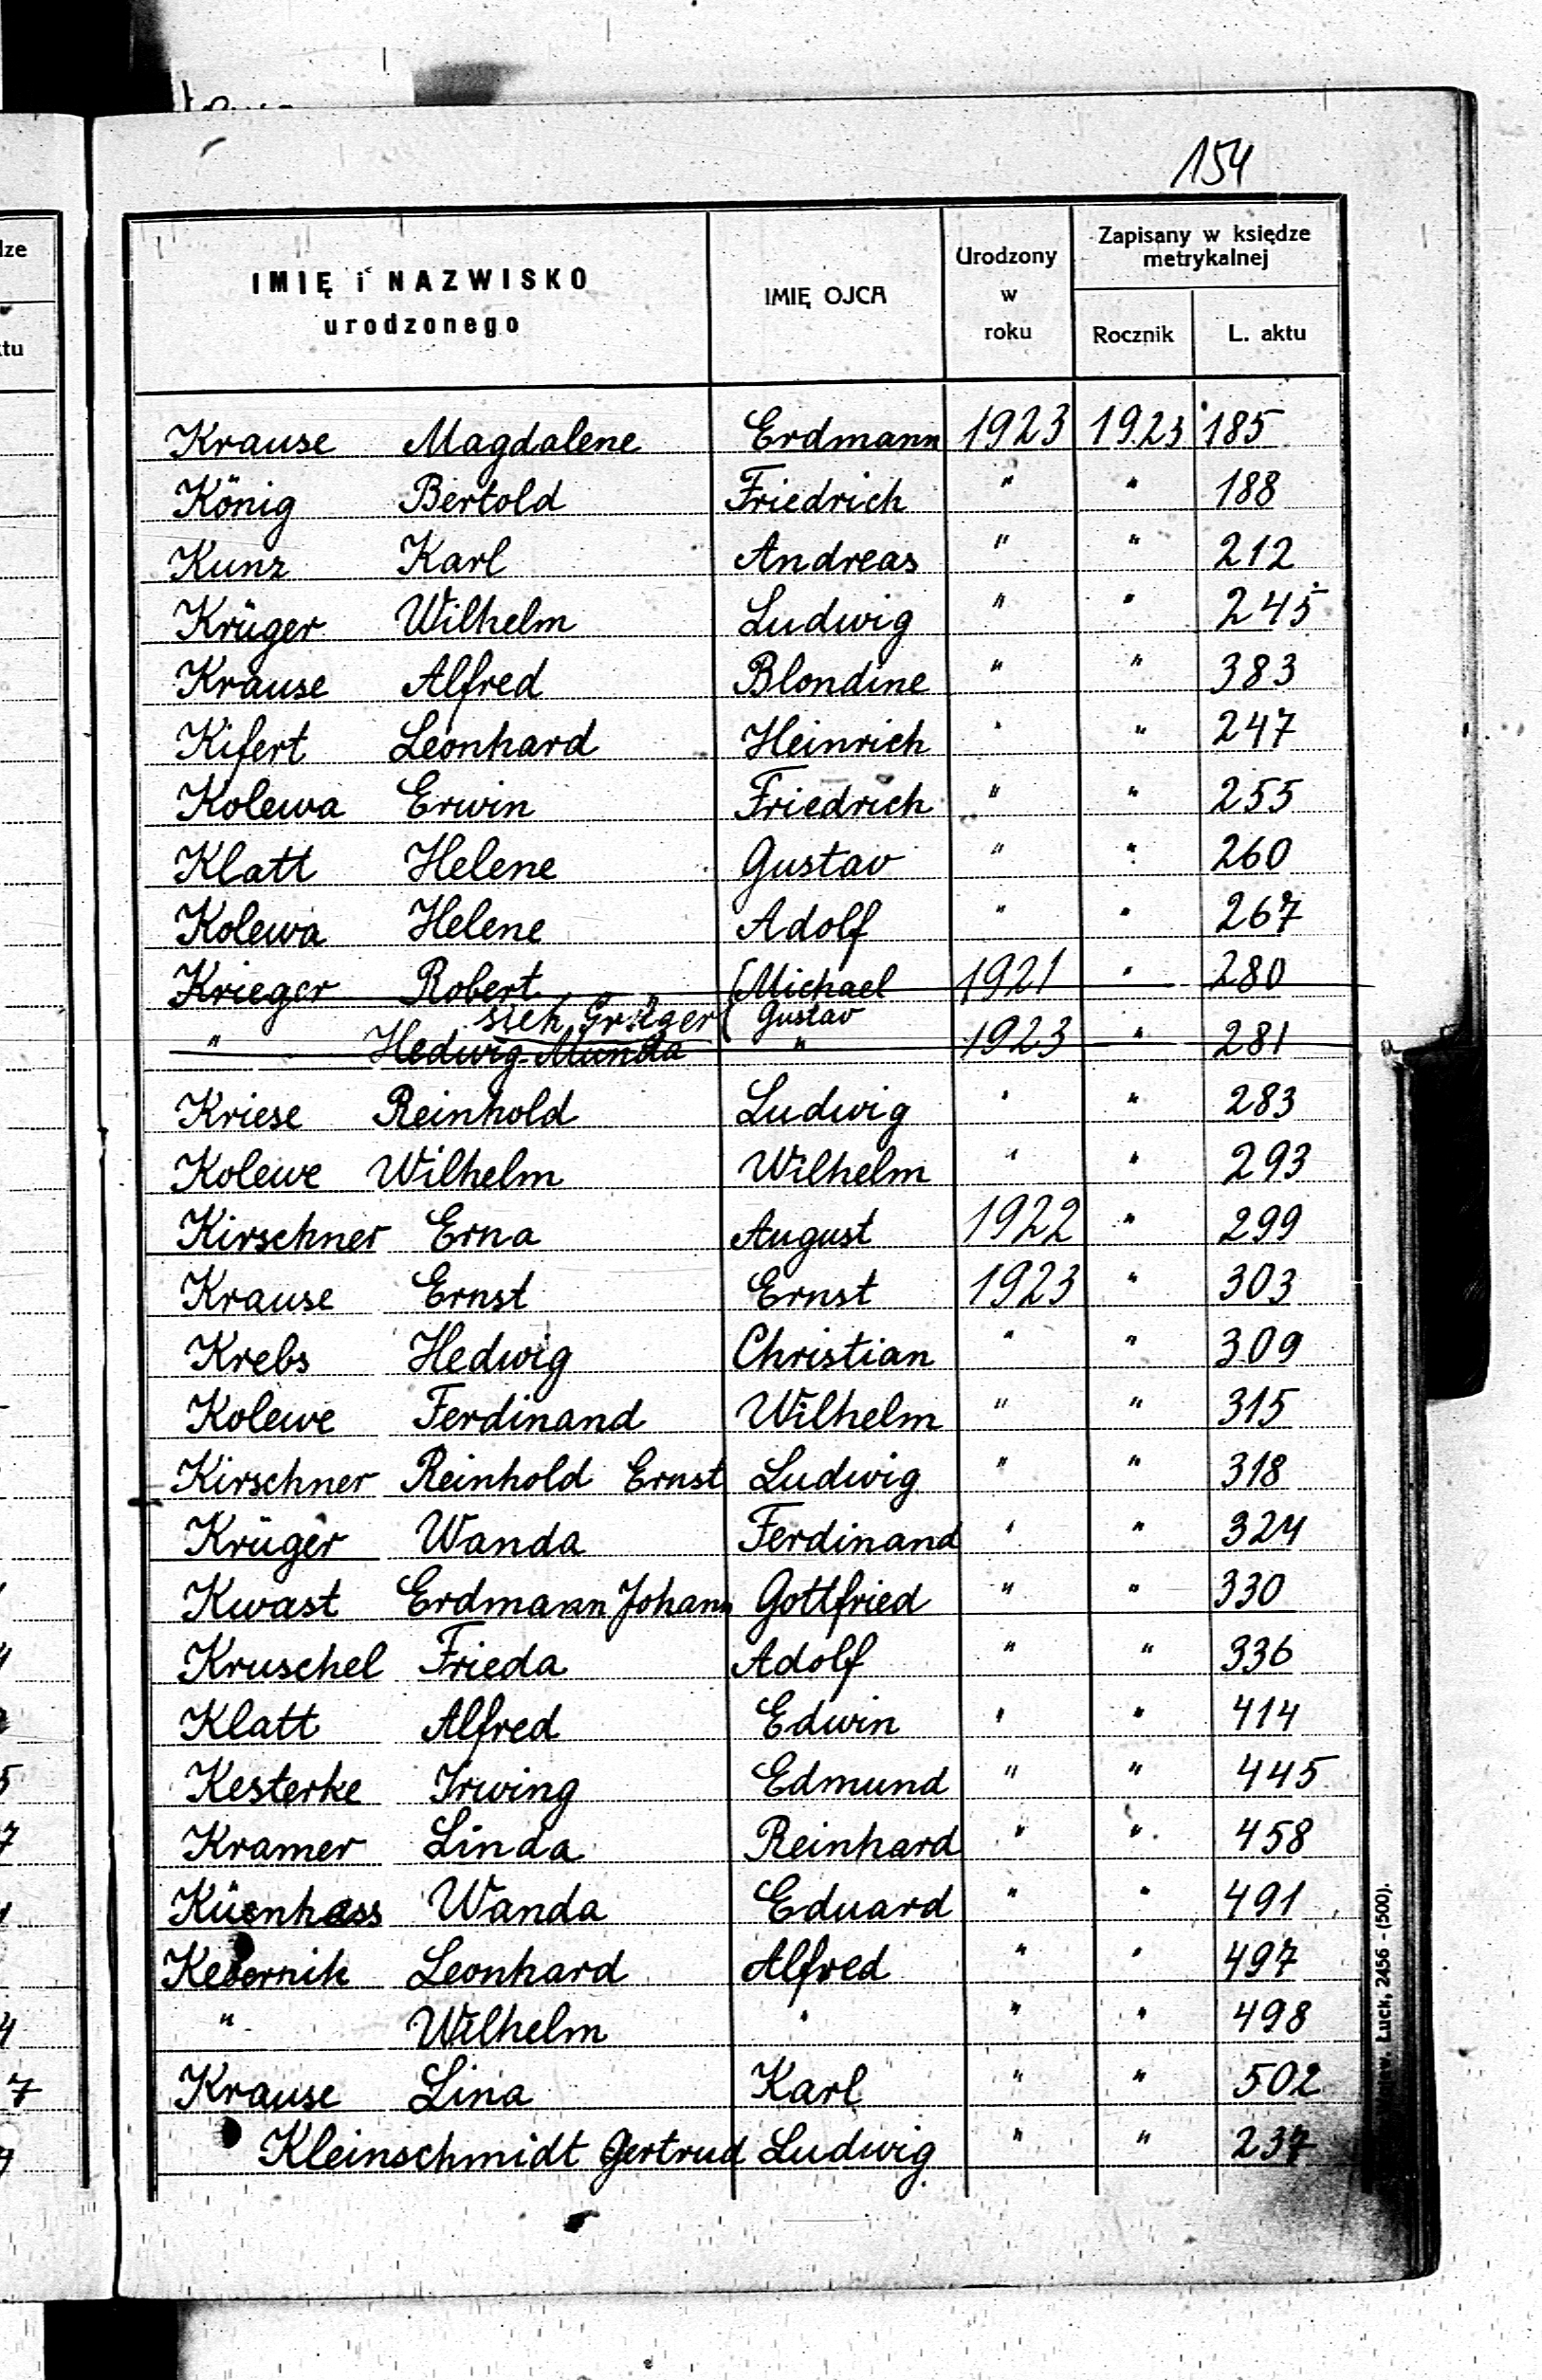 154
IMIĘ i NAZWISKO
urodzonego
IMIĘ OJCA
Urodzony
w
roku
Zapisany w księdze
metrykalnej
Rocznik L. aktu
Krause Magdalene Erdmann 1923 1923 185
König Bertold Friedrich " " 188
Kunz Karl Andreas " " 212
Krüger Wilhelm Ludwig " " 245
Krause Alfred Blondine " " 383
Kifert Leonhard Heinrich " " 247
Kolewa Erwin Friedrich " " 255
Klatt Helene Gustav " " 260
Kolewa Helene Adolf " " 267
Krieger Robert Michael 1921 " 280
sieh Grüger Gustav
" Hedwig Munda " 1923 " 281
Kriese Reinhold Ludwig " " 283
Kolewe Wilhelm Wilhelm " " 293
Kirschner Erna August 1922 " 299
Krause Ernst Ernst 1923 " 303
Krebs Hedwig Christian " " 309
Kolewe Ferdinand Wilhelm " " 315
Kirschner Reinhold Ernst Ludwig " " 318
Krüger Wanda Ferdinand " " 324
Kwast Erdmann Johann Gottfried " " 330
Kruschel Frieda Adolf " " 336
Klatt Alfred Edwin " " 414
Kesterke Irwing Edmund " " 445
Kramer Linda Reinhard " " 458
Küenhass Wanda Eduard " " 491
Kebernik Leonhard Alfred " " 497
" Wilhelm " " " 498
Krause Lina Karl " " 502
Kleinschmidt Gertrud Ludwig " " 237
Łuck, 2456 - (500).